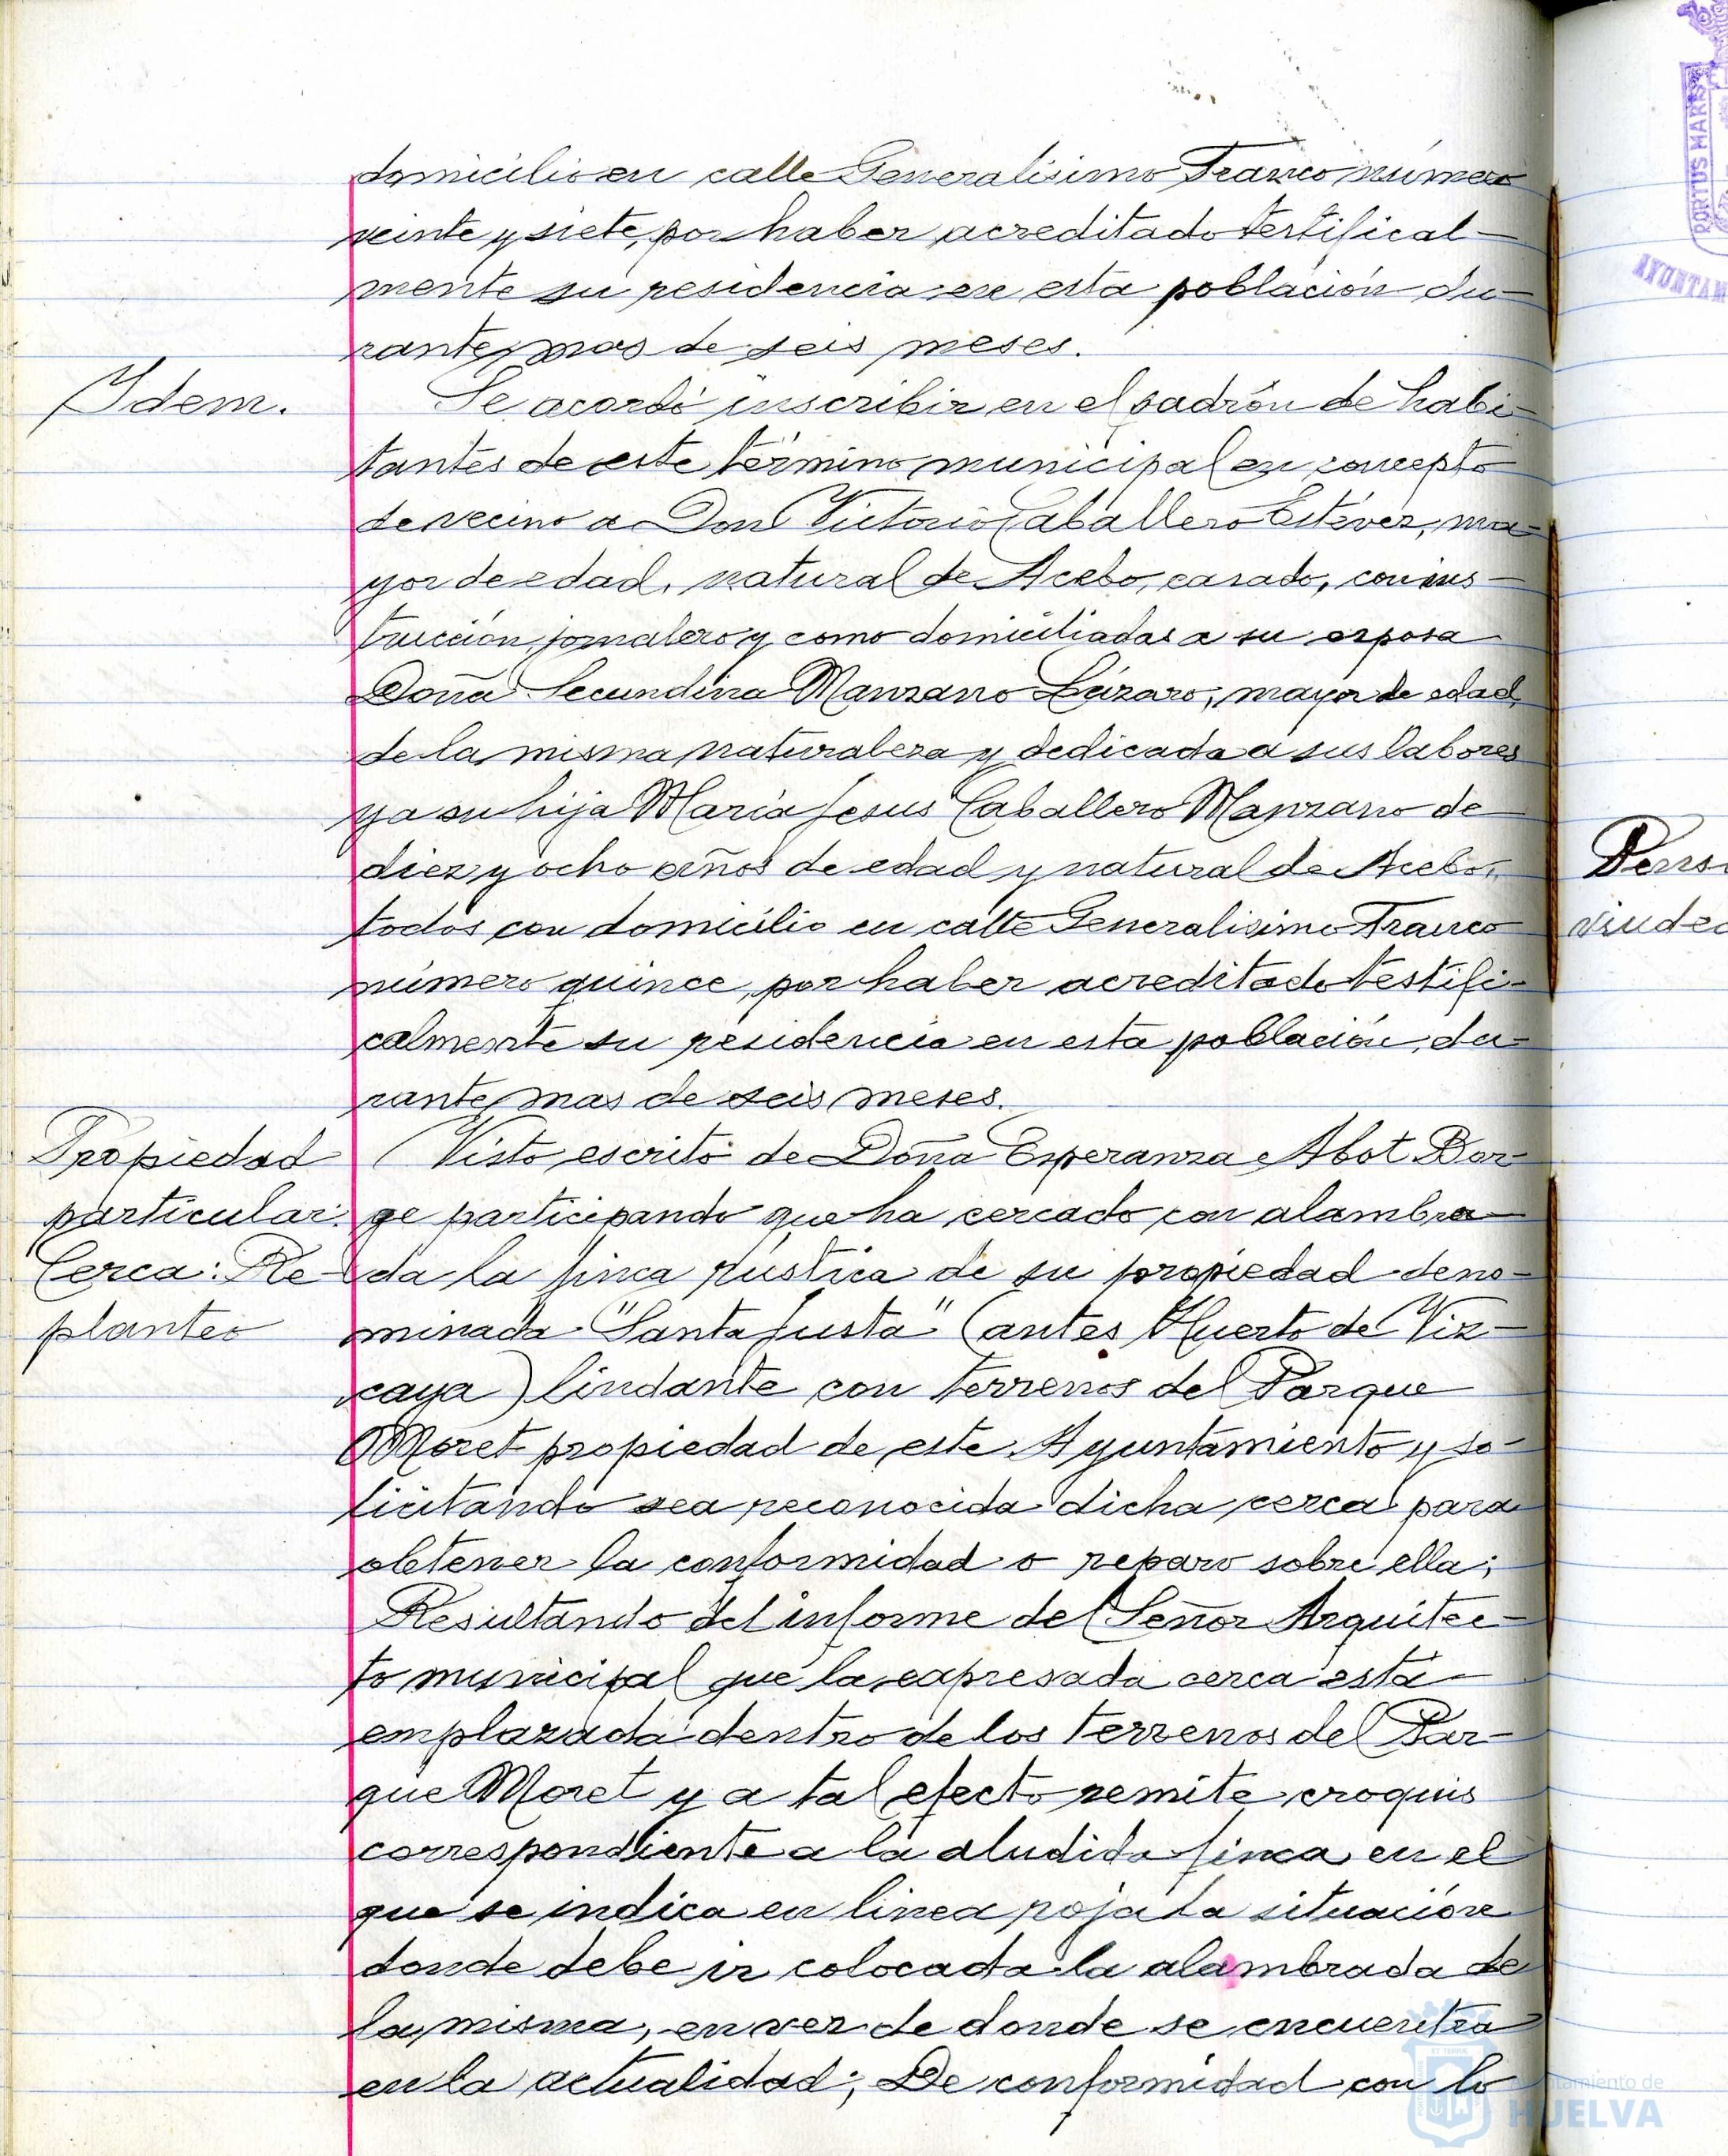 domicilio en calle Generalísimo Franco número
veinte y siete, por haber acreditado testifical-
mente su residencia en esta población du-
rante mas de seis meses.
Idem.
Se acordó inscribir en el padrón de habi-
tantes de este término municipal en concepto
de vecino a Don Victorio Caballero Estévez, ma-
yor de edad, natural de Acebo, casado, con ins-
trucción, jornalero y como domiciliadas a su esposa
Doña Secundina Manzano Lázaro, mayor de edad,
de la misma naturaleza y dedicada a sus labores
y a su hija María Jesus Caballero Manzano de
diez y ocho años de edad y natural de Acebo,
todos con domicilio en calle Generalísimo Franco
número quince, por haber acreditado testifi-
calmente su residencia en esta población, du-
rante mas de seis meses.
Propiedad
particular.
Cerca: Re-
planteo
Visto escrito de Doña Esperanza Abot Bor-
ge participando que ha cercado con alambra-
da la finca rústica de su propiedad deno-
minada "Santa Justa" (antes Huerto de Viz-
caya) lindante con terrenos del Parque
Moret propiedad de este Ayuntamiento y so-
licitando sea reconocida dicha cerca para
obtener la conformidad o reparo sobre ella;
Resultando del informe del Señor Arquitec-
to municipal que la expresada cerca está
emplazada dentro de los terrenos del Par-
que Moret y a tal efecto remite croquis
correspondiente a la aludida finca en el
que se indica en linea roja la situación
donde debe ir colocada la alambrada de
la misma, en vez de donde se encuentra
en la actualidad; De conformidad con lo
PORTUS MARIS
AYUNTAM
Perso
viuded
HUELVA